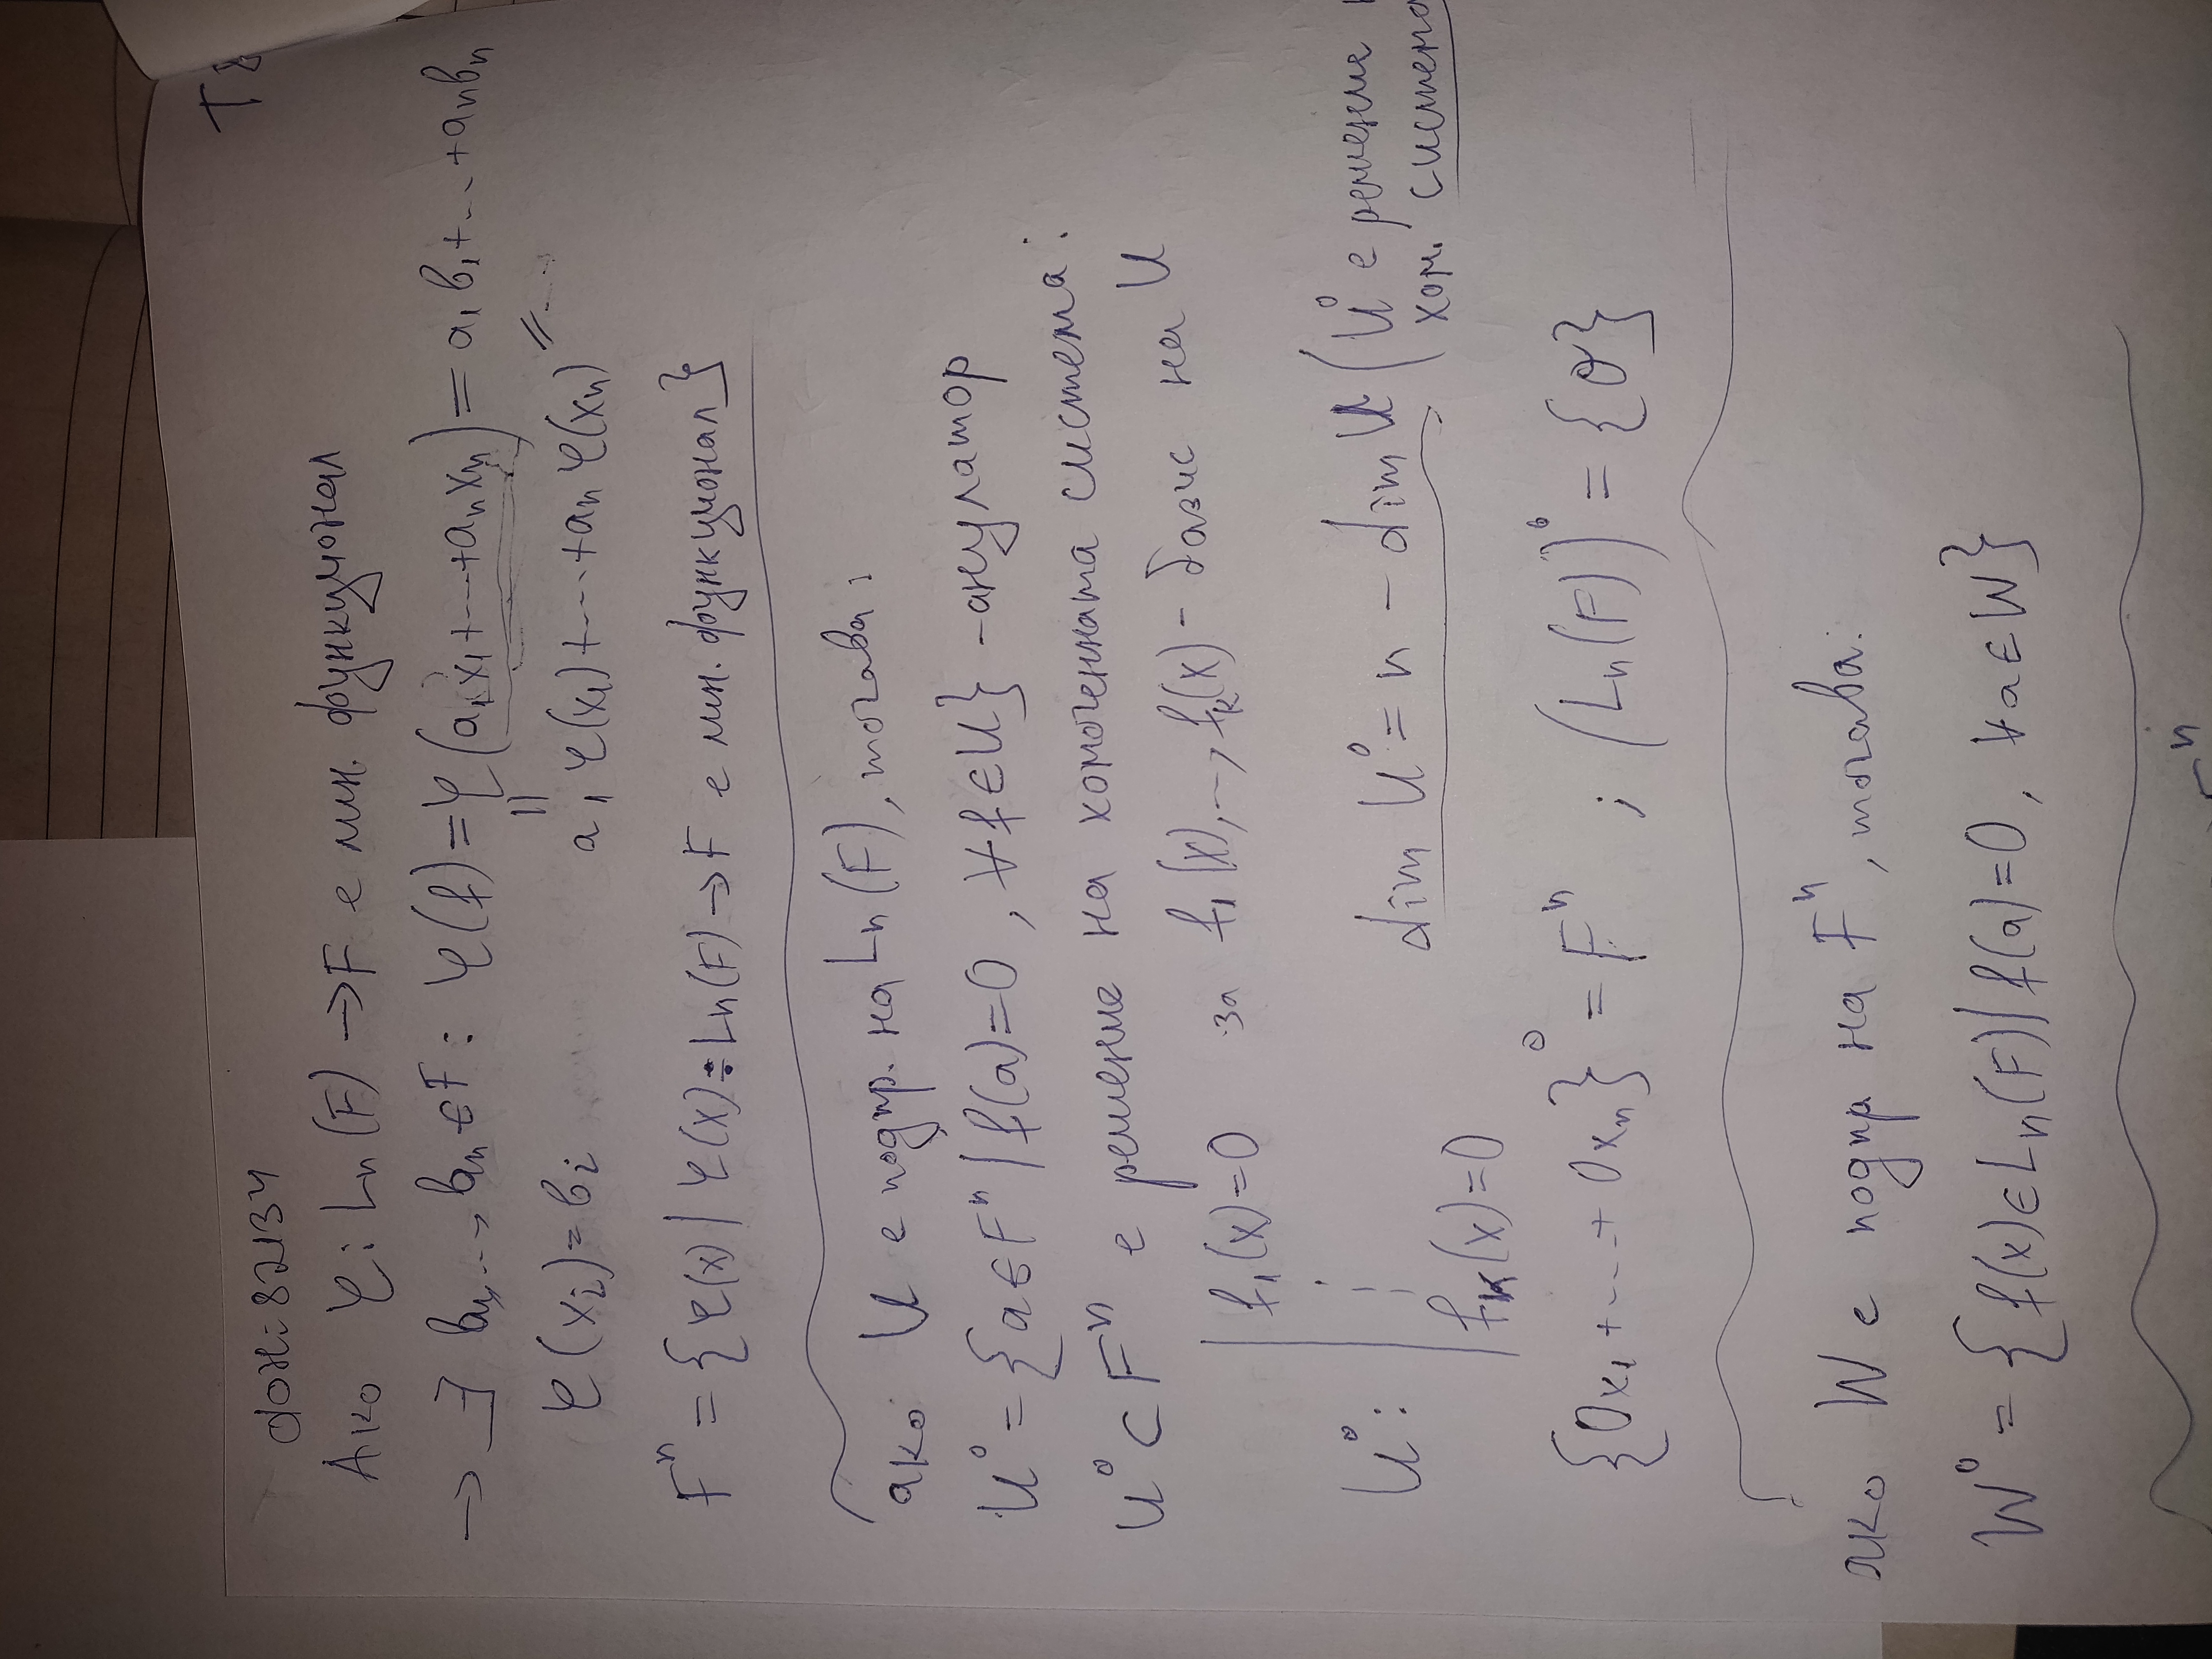 T
фн: 82134
Ако φ: Ln(F) → F е лин. функционал
→ ∃ b1,..., bn ∈ F : φ(f) = φ(a1x1+...+anxn) = a1b1+...+anbn
φ(xi) = bi || a1φ(x1)+...+anφ(xn) =...
Fⁿ = {φ(x) | φ(x): Ln(F) → F е лин. функционал}
ако U е подпр. на Ln(F), тогава:
U⁰ = {a∈Fⁿ | f(a)=0, ∀f∈U} - анулатор
U⁰ ⊂ Fⁿ е решение на хомогенната система:
f1(x)=0 за f1(x),..., fk(x) - базис на U
U⁰: ⋮ dim U⁰ = n - dim U (U⁰ е решение
хом. система
fk(x)=0
{0x1+...+0xn}⁰ = Fⁿ ; (Ln(F))⁰ = {θ}
ако W е подпр на Fⁿ, тогава:
W⁰ = {f(x)∈Ln(F) | f(a)=0, ∀a∈W}